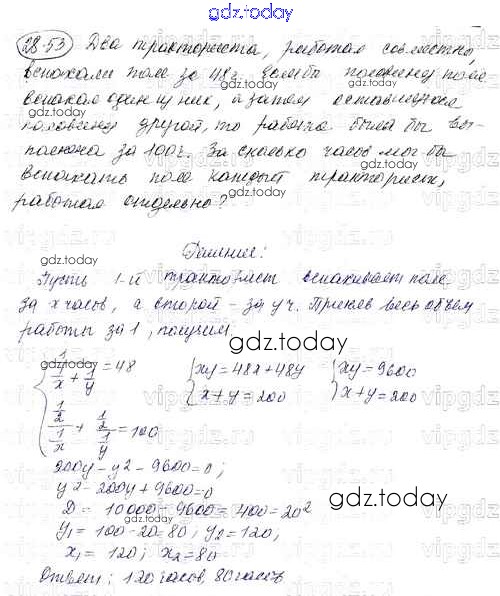 gdz.today
28.53 Два тракториста, работая совместно,
вспахали поле за 48ч. Если бы половину поля
вспахал один из них, а затем оставшуюся
половину другой, то работа была бы вы-
полнена за 100ч. За сколько часов мог бы
вспахать поле каждый тракторист,
работая отдельно?
Решение:
Пусть 1-й тракторист вспахивает поле
за x часов, а второй - за y ч. Приняв весь объем
работы за 1, получим
{ 1/(1/x + 1/y) = 48 { xy = 48x + 48y { xy = 9600
{ (1/2)/(1/x) + (1/2)/(1/y) = 100 { x + y = 200 { x + y = 200
200y - y² - 9600 = 0;
y² - 200y + 9600 = 0
D = 10000 - 9600 = 400 = 20²
y₁ = 100 - 20 = 80, y₂ = 120,
x₁ = 120; x₂ = 80
Ответ: 120 часов, 80 часов